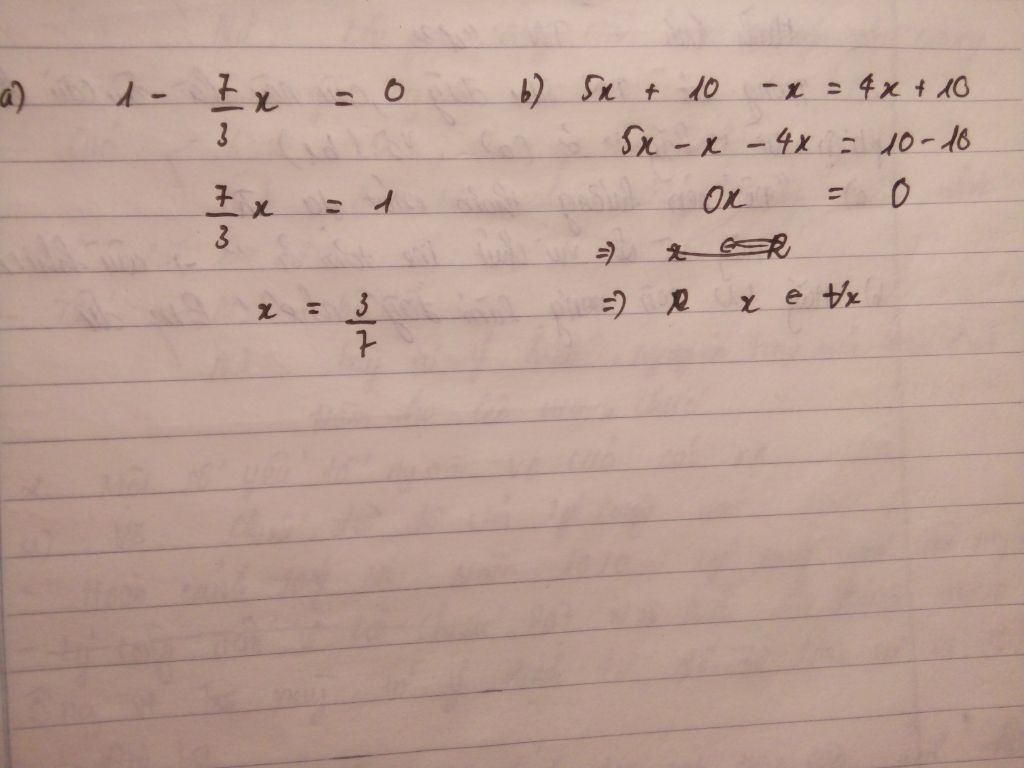 a) 1 - 7/3 x = 0
7/3 x = 1
x = 3/7
b) 5x + 10 - x = 4x + 10
5x - x - 4x = 10 - 10
0x = 0
=> x ∈ R
=> x ∈ ∀x